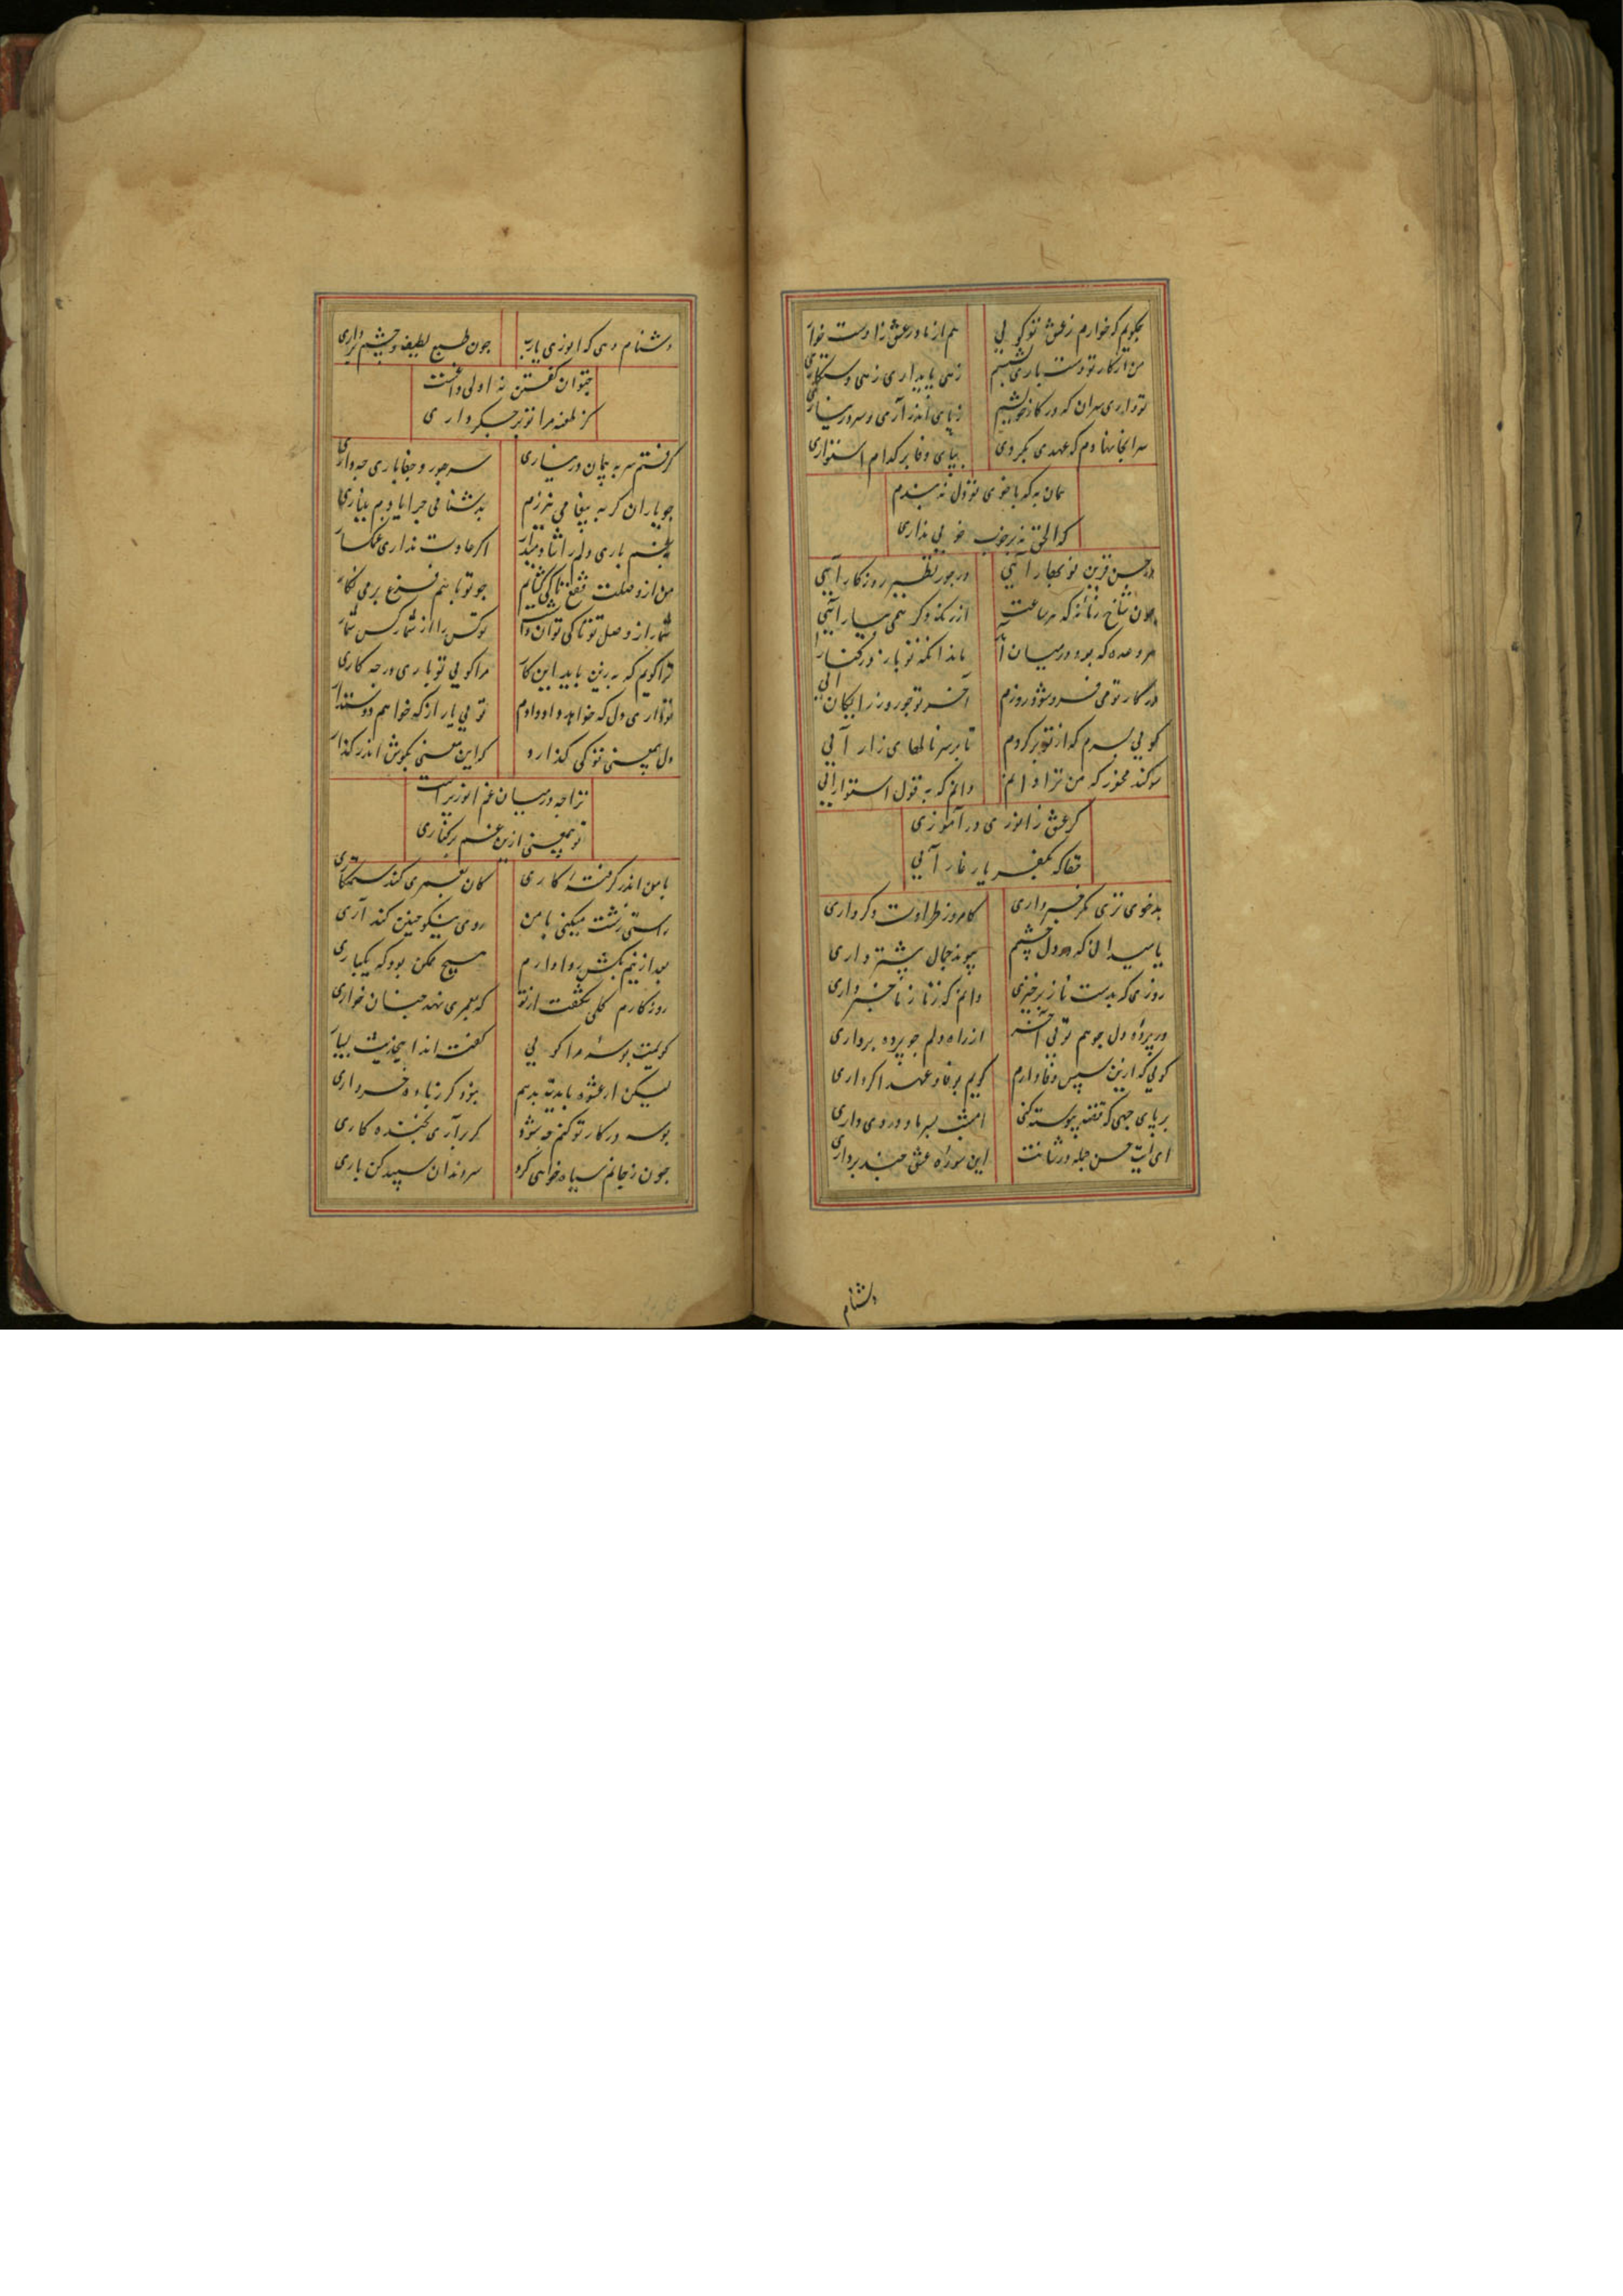 بگویم که خوارم ز عشق تو گویی
هم از مادر عشق زادست خواری
من از کار تو دست باری بشستم
زهی پایداری زهی دستکاری
تو داری سر آن که در کار خویشم
ز پای اندر آری و سر در نیاری
سر اینجا نهادم که عهدی بکردی
بپای وفا بر کدام استواری
همان به که با خوی تو دل نبندم
که الحق نه بر خوب خویی نداری
در حسن قرین نوبهار آیی
در جور نظیر روزگار آیی
چون شاخ زمانه که هر ساعت
از رنگ دگر همی ببار آیی
هر وعده که بود در میان
ماند آنکه تو باز در کنار آیی
در کار تو می فروشود روزم
آخر تو چو روز رایگان آیی
گویی بسرم که از تو برگردم
تا بر سر نالهای زار آیی
سوگند مخور که من ترا دانم
دانم که به قول استوار آیی
گر عشق ز انوری درآموزی
حقا که بمغفر یار غار آیی
بدخوی تری مگر خبر داری
کامروز طراوت دگر داری
یا میدانی که در دل و چشمم
پیوند جمال بیشتر داری
روزی که بدست ناز برخیزی
دانم که ز نازها خبر داری
در پرده دل چو هم تویی آخر
از راه دلم چو پرده برداری
گویی که ازین سپس وفا دارم
گویم بوفا و عهد اگر داری
بر پای جهی که قصه پیوسته کنی
امشب سر ما و درد وی داری
ای آیت حسن جمله در شانت
این سوره عشق چند برداری
دشنام
دشنام دهی که انوری یارب
چون طبع لطیف و چشم تر داری
چتوان گفتن نه اولی و داغست
کز طعنه مرا تو بر جگر داری
گرفتم سر به پیمان در نیاری
سر جور و جفا باری چه داری
چو یاران گر به پیغامی نیرزم
به دشنامی چرا یادم نیاری
بغم باری دلم را شاد میدار
اگر عادت نداری غمگسار
من از وصلت فقع تا کی گشایم
چو تو با هم فقع بر می نگار
شمار از وصل تو تا کی توان داشت
تو کس را از شمار کس شمار
ترا گویم که به زین باید این کار
مرا گویی تو باری در چه کاری
تو داری دل که خواهد داد دادم
تو بی یار از که خواهم دوستدار
دل همچنین تو کی گذارد
که این معنی بگوش اندر گذار
ترا چه در میان غم انوریراست
تو همچنین ازین غم بر کناری
با من اندر گرفته کاری
کان بعمری کند ستمکاری
راستی زشت میکنی با من
روی نیکو چنین کند آری
بعد ازینم بکش روا دارم
هیچ ممکن بود که یکباری
روزگارم گلی شکفت از تو
که بعمری نهد چنان خواری
گویمت بوسه مرا گویی
گفته اند اینحدیث بسیار
لیکن از عشوه بایدت بدهم
بنزد گر زیاده خرواری
بوسه در کار تو کنم چه شود
گر برآری بخنده کاری
چون ز جانم سیاه خواهی کرد
سر و دندان سپید کن باری